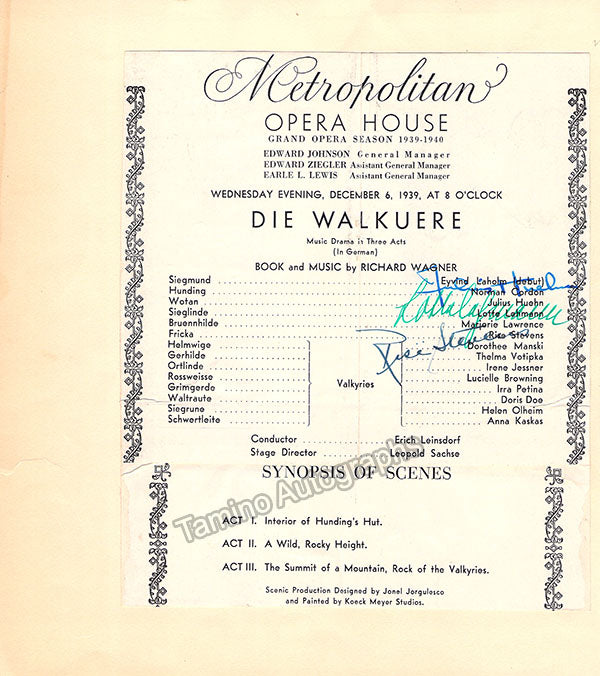 Metropolitan
OPERA HOUSE
GRAND OPERA SEASON 1939-1940
EDWARD JOHNSON General Manager
EDWARD ZIEGLER Assistant General Manager
EARLE L. LEWIS Assistant General Manager
WEDNESDAY EVENING, DECEMBER 6, 1939, AT 8 O'CLOCK
DIE WALKUERE
Music Drama in Three Acts
(In German)
BOOK and MUSIC by RICHARD WAGNER
Siegmund Eyvind Laholm (debut)
Hunding Norman Cordon
Wotan Julius Huehn
Sieglinde Lotte Lehmann
Bruennhilde Marjorie Lawrence
Fricka Rise Stevens
Helmwige Dorothee Manski
Gerhilde Thelma Votipka
Ortlinde Irene Jessner
Rossweisse Lucielle Browning
Grimgerde Irra Petina
Waltraute Doris Doe
Siegrune Helen Olheim
Schwertleite Anna Kaskas
Valkyries
Julius Huehn
Lotte Lehmann
Rise Stevens
Conductor Erich Leinsdorf
Stage Director Leopold Sachse
SYNOPSIS OF SCENES
ACT I. Interior of Hunding's Hut.
ACT II. A Wild, Rocky Height.
ACT III. The Summit of a Mountain, Rock of the Valkyries.
Scenic Production Designed by Jonel Jorgulesco
and Painted by Koeck Meyer Studios.
Tamino Autographs